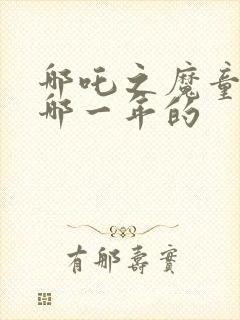 哪吒之魔童
哪一年的
有哪寿实